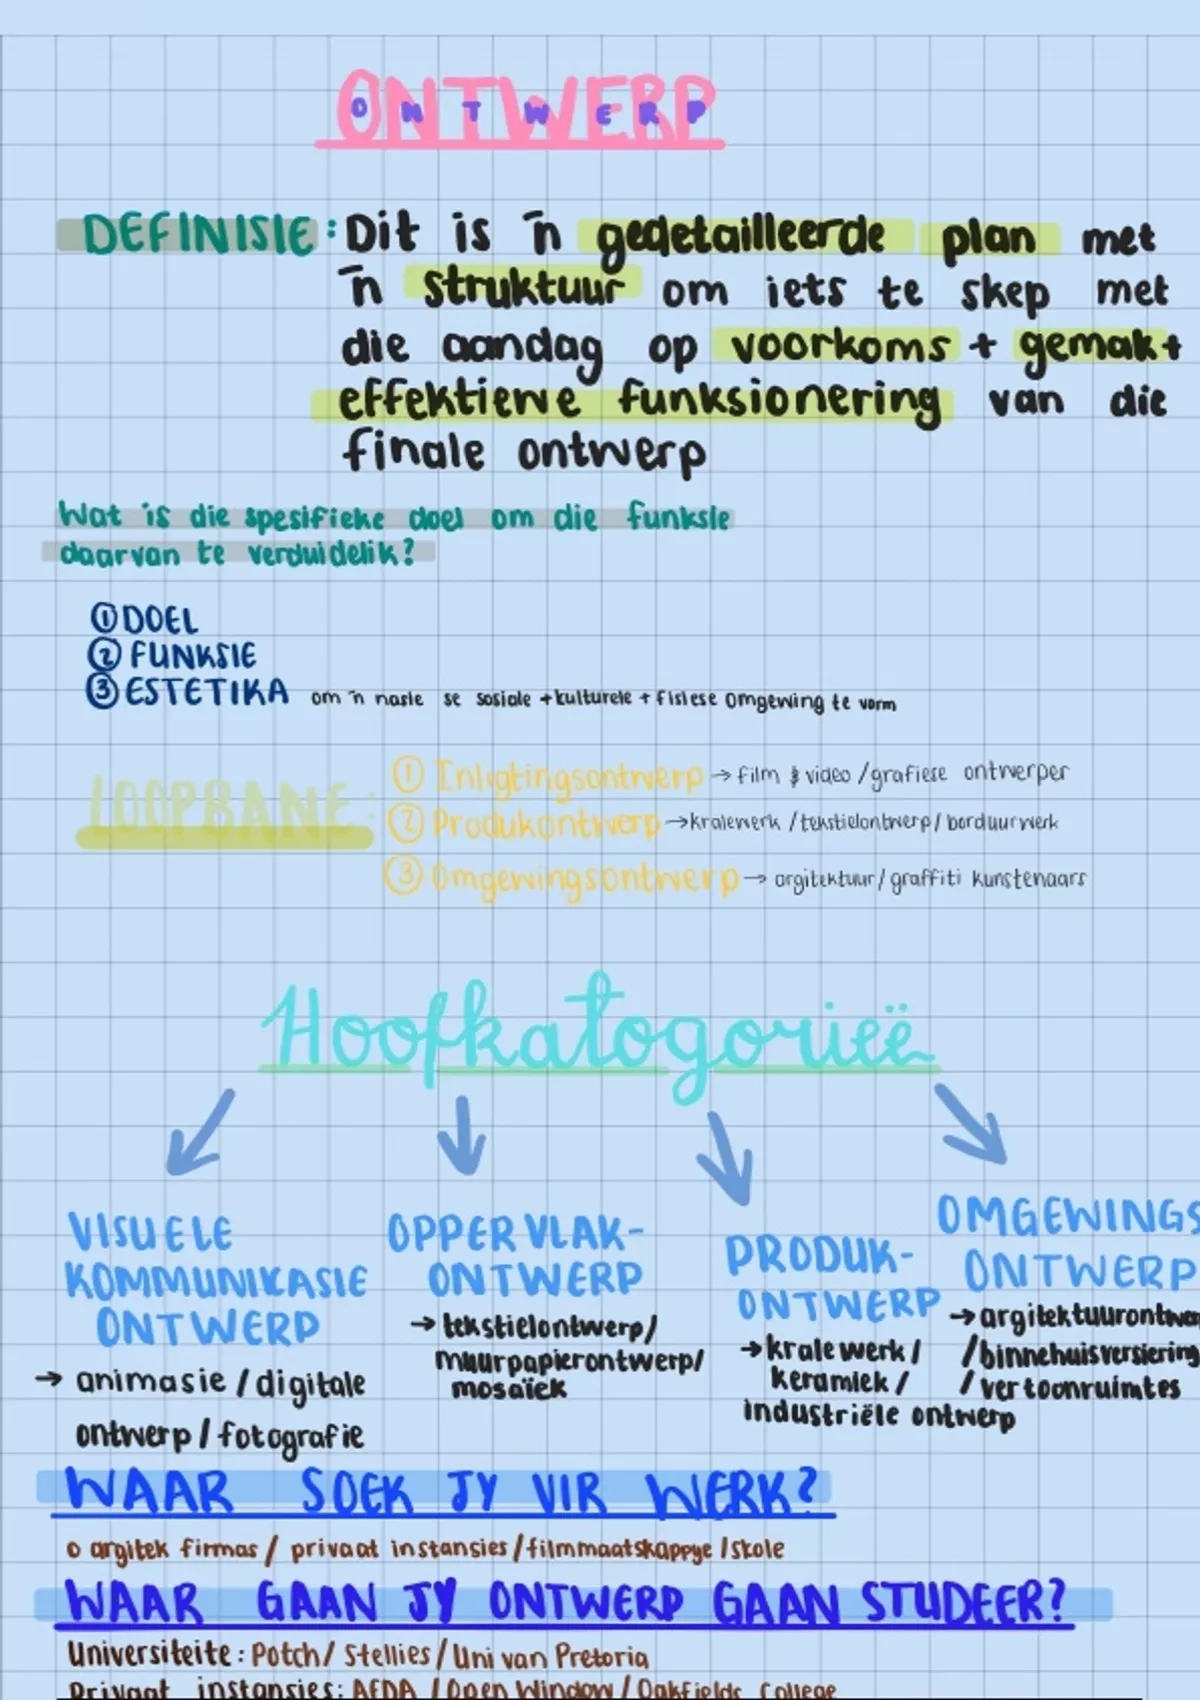 ONTWERP
DEFINISIE: Dit is 'n gedetailleerde plan met
'n struktuur om iets te skep met
die aandag op voorkoms + gemak +
effektiewe funksionering van die
finale ontwerp
Wat is die spesifieke doel om die funksie
daarvan te verduidelik?
① DOEL
② FUNKSIE
③ ESTETIKA om 'n nasie se sosiale + kulturele + fisiese omgewing te vorm
LOOPBANE:
① Inligtingsontwerp → film & video / grafiese ontwerper
② Produkontwerp → kralewerk / tekstielontwerp / borduurwerk
③ Omgewingsontwerp → argitektuur / graffiti kunstenaars
Hoofkatogorieë
VISUELE
KOMMUNIKASIE
ONTWERP
→ animasie / digitale
ontwerp / fotografie
OPPERVLAK-
ONTWERP
→ tekstielontwerp /
muurpapierontwerp /
mosaïek
PRODUK-
ONTWERP
→ kralewerk /
keramiek /
industriële ontwerp
OMGEWINGS
ONTWERP
→ argitektuurontwer
/ binnehuisversiering
/ vertoonruimtes
WAAR SOEK JY VIR WERK?
o argitek firmas / privaat instansies / filmmaatskappye / skole
WAAR GAAN JY ONTWERP GAAN STUDEER?
Universiteite: Potch / Stellies / Uni van Pretoria
Privaat instansies: AFDA / Open Window / Oakfields College